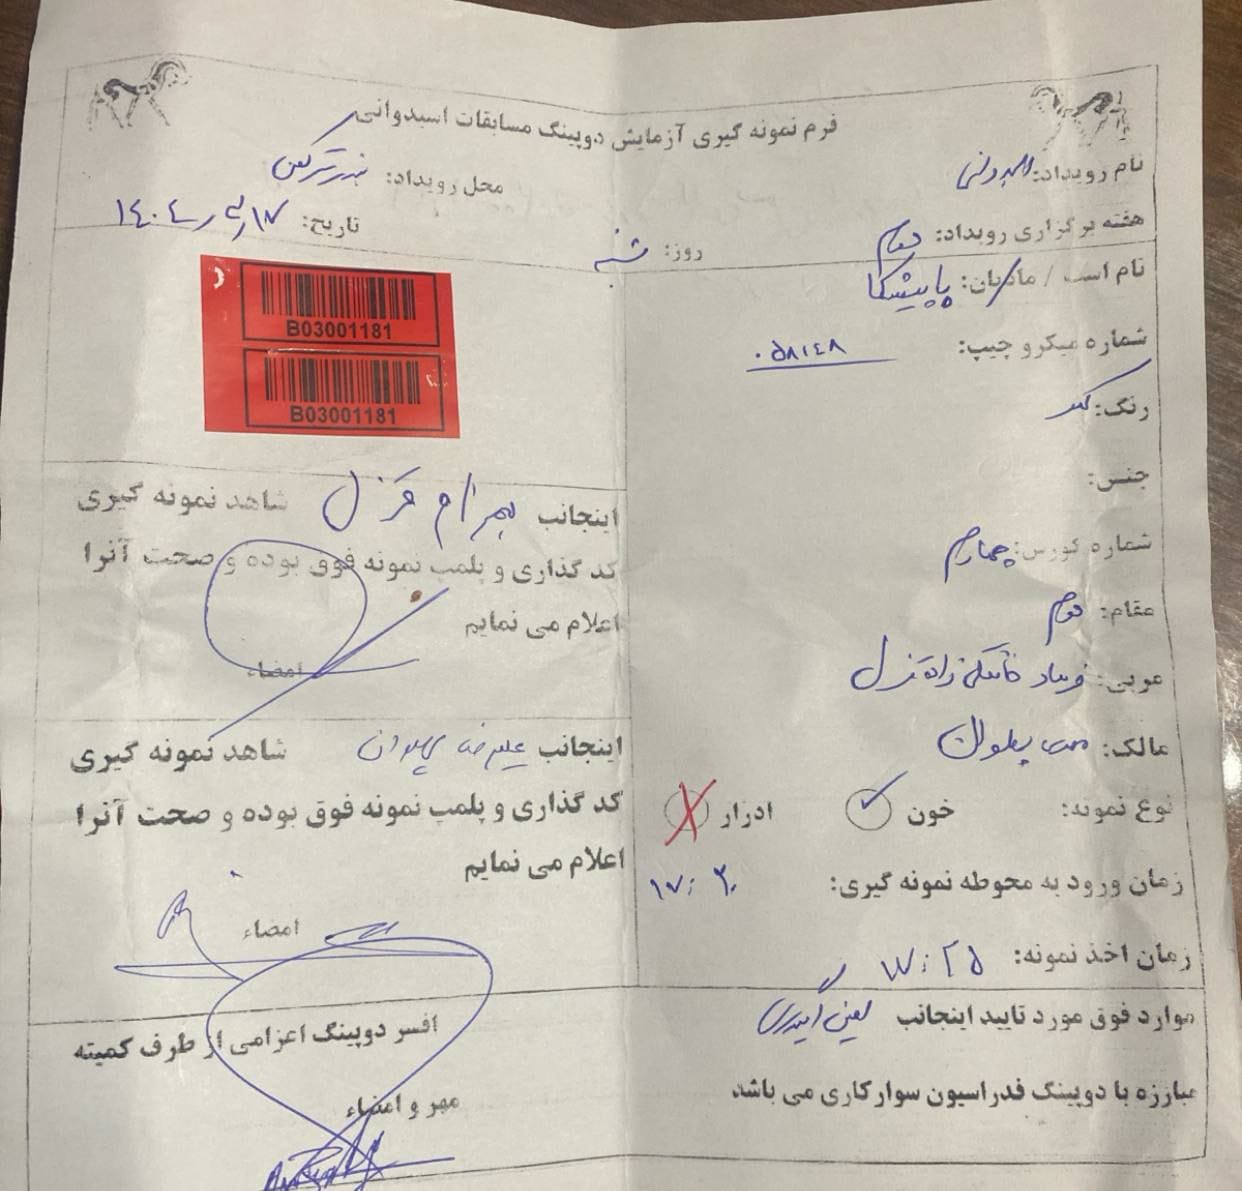 فرم نمونه گیری آزمایش دوپینگ مسابقات اسبدوانی
نام رویداد: اسبدوانی
محل رویداد: بندرترکمن
هفته برگزاری رویداد: دوم
روز: شنبه
تاریخ: ۱۴۰۴
نام اسب / مادیان: پاپیشکا
شماره میکرو چیپ: ۰۵۸۱۴۸
رنگ: کهر
جنس:
شماره کورس: چهارم
مقام: دوم
مربی: فرساد قزل
مالک: پهلوان
نوع نمونه: خون ادرار
زمان ورود به محوطه نمونه گیری: ۱۷:۲۰
زمان اخذ نمونه: ۱۷:۲۵
موارد فوق مورد تایید اینجانب
مبارزه با دوپینگ فدراسیون سوارکاری می باشد
B03001181
B03001181
اینجانب بهرام قزل شاهد نمونه گیری
کد گذاری و پلمب نمونه فوق بوده و صحت آنرا
اعلام می نمایم
امضاء
اینجانب علیرضا پهلوان شاهد نمونه گیری
کد گذاری و پلمب نمونه فوق بوده و صحت آنرا
اعلام می نمایم
امضاء
افسر دوپینگ اعزامی از طرف کمیته
مهر و امضاء